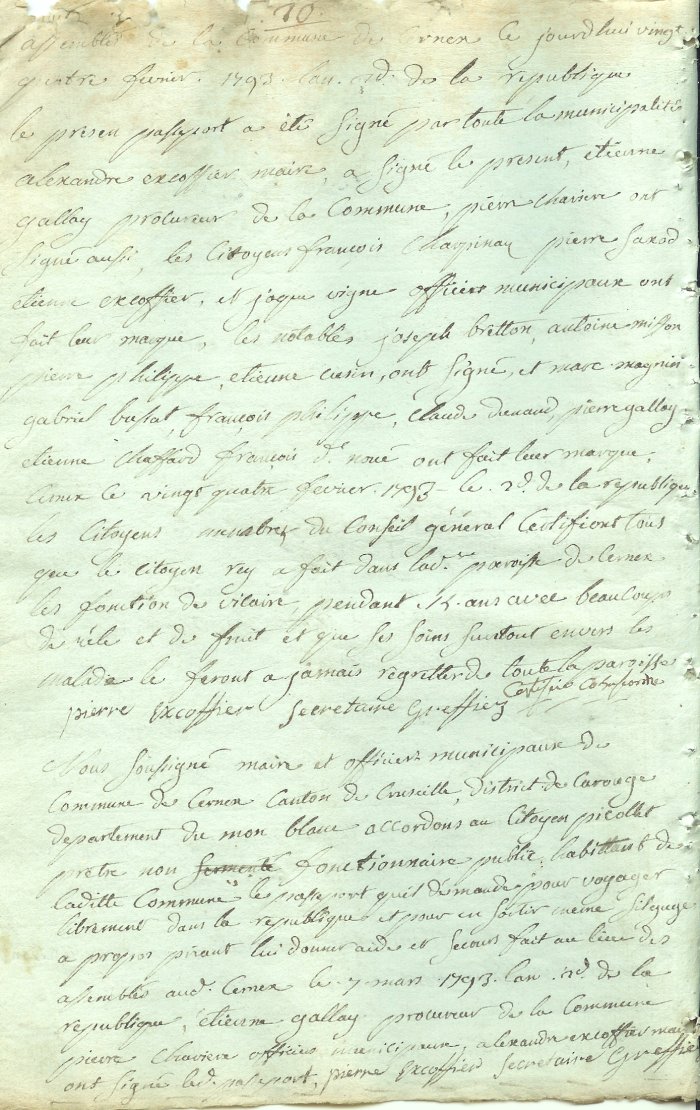 10
assemblés de la Commune de Cernex ce jourdhui vingt
quatre fevrier 1793 lan 2d. de la republique
le présen passport a été signé par toute la municipalité
alexandre excoffier maire, a signé le present, etienne
gallay procureur de la Commune, pierre chariere ont
signé aussi, les Citoyens françois Charpinay pierre Saxod
etienne excoffier, et jaque vigne officiers municipaux ont
fait leur marque, les notables joseph bretton, antoine misson
pierre philippe, etienne cusin, ont signé, et marc magnin
gabriel bussat, françois philippe, Claude duvaud, pierre gallay
etienne Chaffard françois de noué ont fait leur marque,
Cernex le vingt quatre fevrier 1793 le 2d. de la republique
les Citoyens membres du Conseil général Certifiont tous
que le Citoyen rey a fait dans lad. paroisse de Cernex
les fonction de vicaire, pendant ans avec beaucoup
de zèle et de fruit et que ses soins surtout envers les
malade le feront a jamais regretter de toute la paroisse
pierre Excoffier Secretaire Greffier Certifié Conforme
Nous soussigné maire et officier municipaux de
Commune de Cernex Canton de Cruseille, district de Carouge
departement du mon blanc accordons au Citoyen picollet
pretre non sermenté fonctionnaire public, habittant de
laditte Commune le passeport quil demande pour voyager
librement dans la republique et pour en sortir meme sil juge
a propos priant lui donner aide et secours fait au lieu des
assemblés aud. Cernex le 7 mars 1793 lan 2d. de la
republique, etienne gallay procureur de la Commune
pierre Chariere officier municipaux, alexandre excoffier maire
ont signé led. passeport, pierre Excoffier Secretaire Greffier